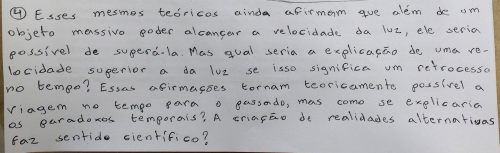 ④ Esses mesmos teóricos ainda afirmam que além de um
objeto massivo poder alcançar a velocidade da luz, ele seria
possível de superá-la. Mas qual seria a explicação de uma ve-
locidade superior a da luz se isso significa um retrocesso
no tempo? Essas afirmações tornam teoricamente possível a
viagem no tempo para o passado, mas como se explicaria
os paradoxos temporais? A criação de realidades alternativas
faz sentido científico?